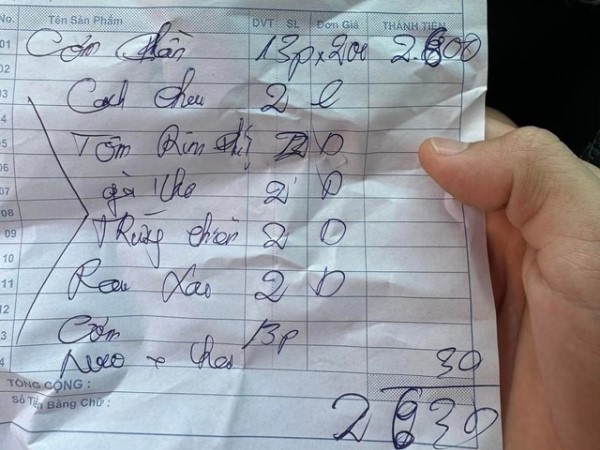 No. Tên Sản Phẩm ĐVT SL Đơn Giá THÀNH TIỀN
01 Cơm phần 13p x 200 2.600
02
03 Canh chua 2 l
Tôm Rim 2 D
05
06
07 gà kho 2 D
08
09 TRứng chiên 2 D
10
11 Rau Xào 2 D
12
Cơm 13p
30
TỔNG CỘNG : 2630
Số Tiền Bằng Chữ :